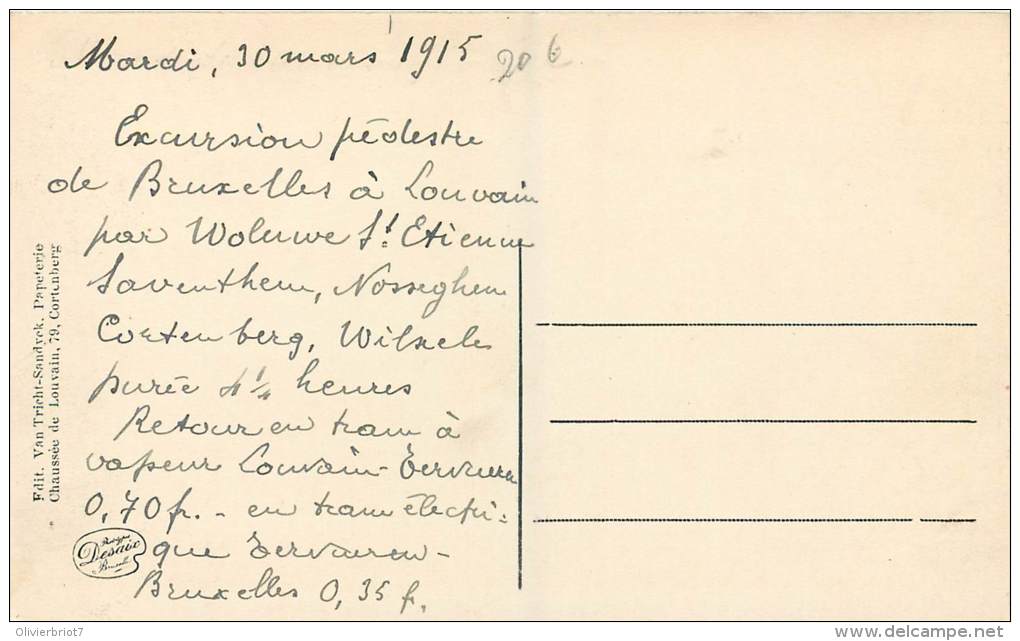 Mardi, 30 mars 1915
20 6
Excursion pédestre
de Bruxelles à Louvain
par Woluwe St Etienne
Saventhem, Nosseghem
Cortenberg, Wilsele
purée 4 1/4 heures
Retour en tram à
vapeur Louvain-Tervuren
0,70 fr. - en tram électri-
que Tervueren-
Bruxelles 0,35 fr.
Edit. Van Tricht-Sandyck, Papeterie
Chaussée de Louvain, 79, Cortenberg
Desaix
Olivierbriot7
www.delcampe.net